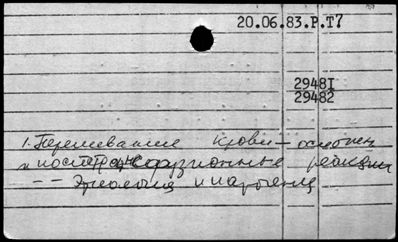 20.06.83.Р.Т7
29481
29482
1. Переливание крови – осложнен
и посттрансфузионные реакции
-- Этиология и патогенез